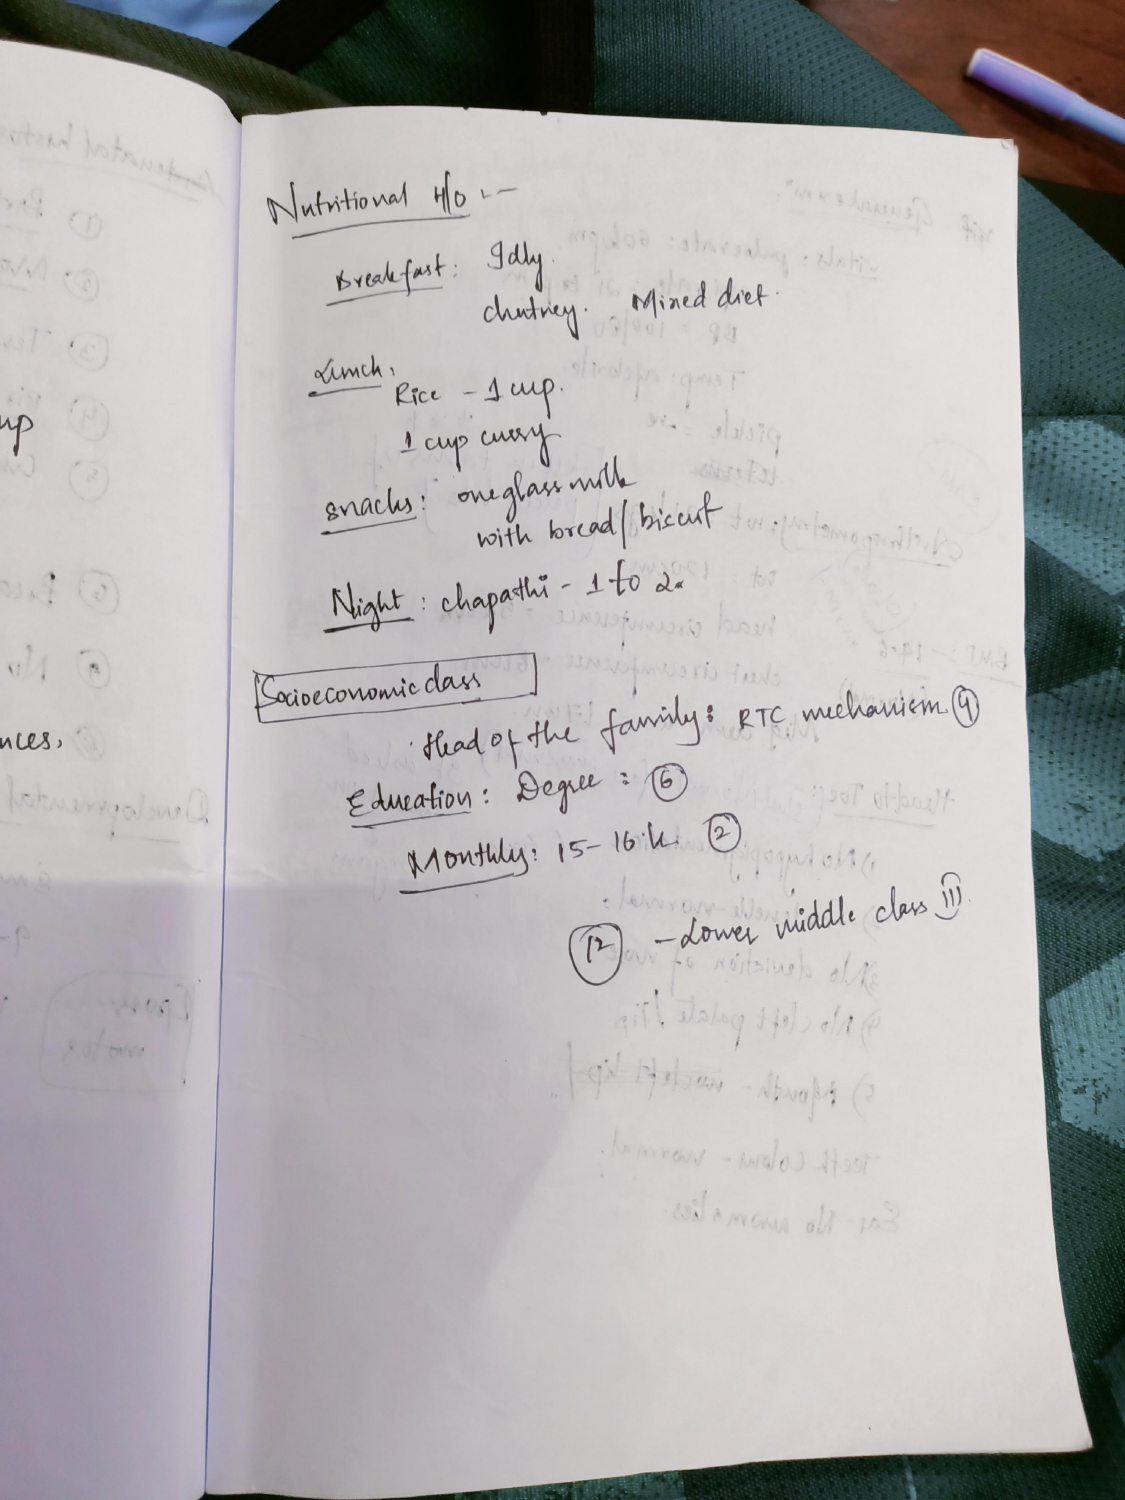 Nutritional H/O :-
Breakfast: Idly.
chutney. Mixed diet.
Lunch:
Rice - 1 cup.
1 cup curry
snacks: one glass milk
with bread/biscuit
Night: chapathi - 1 to 2.
Socioeconomic class
Head of the family: RTC mechanism
Education: Degree : 6
Monthly: 15-16 k. 2
12 - Lower middle class III.
up
nces,